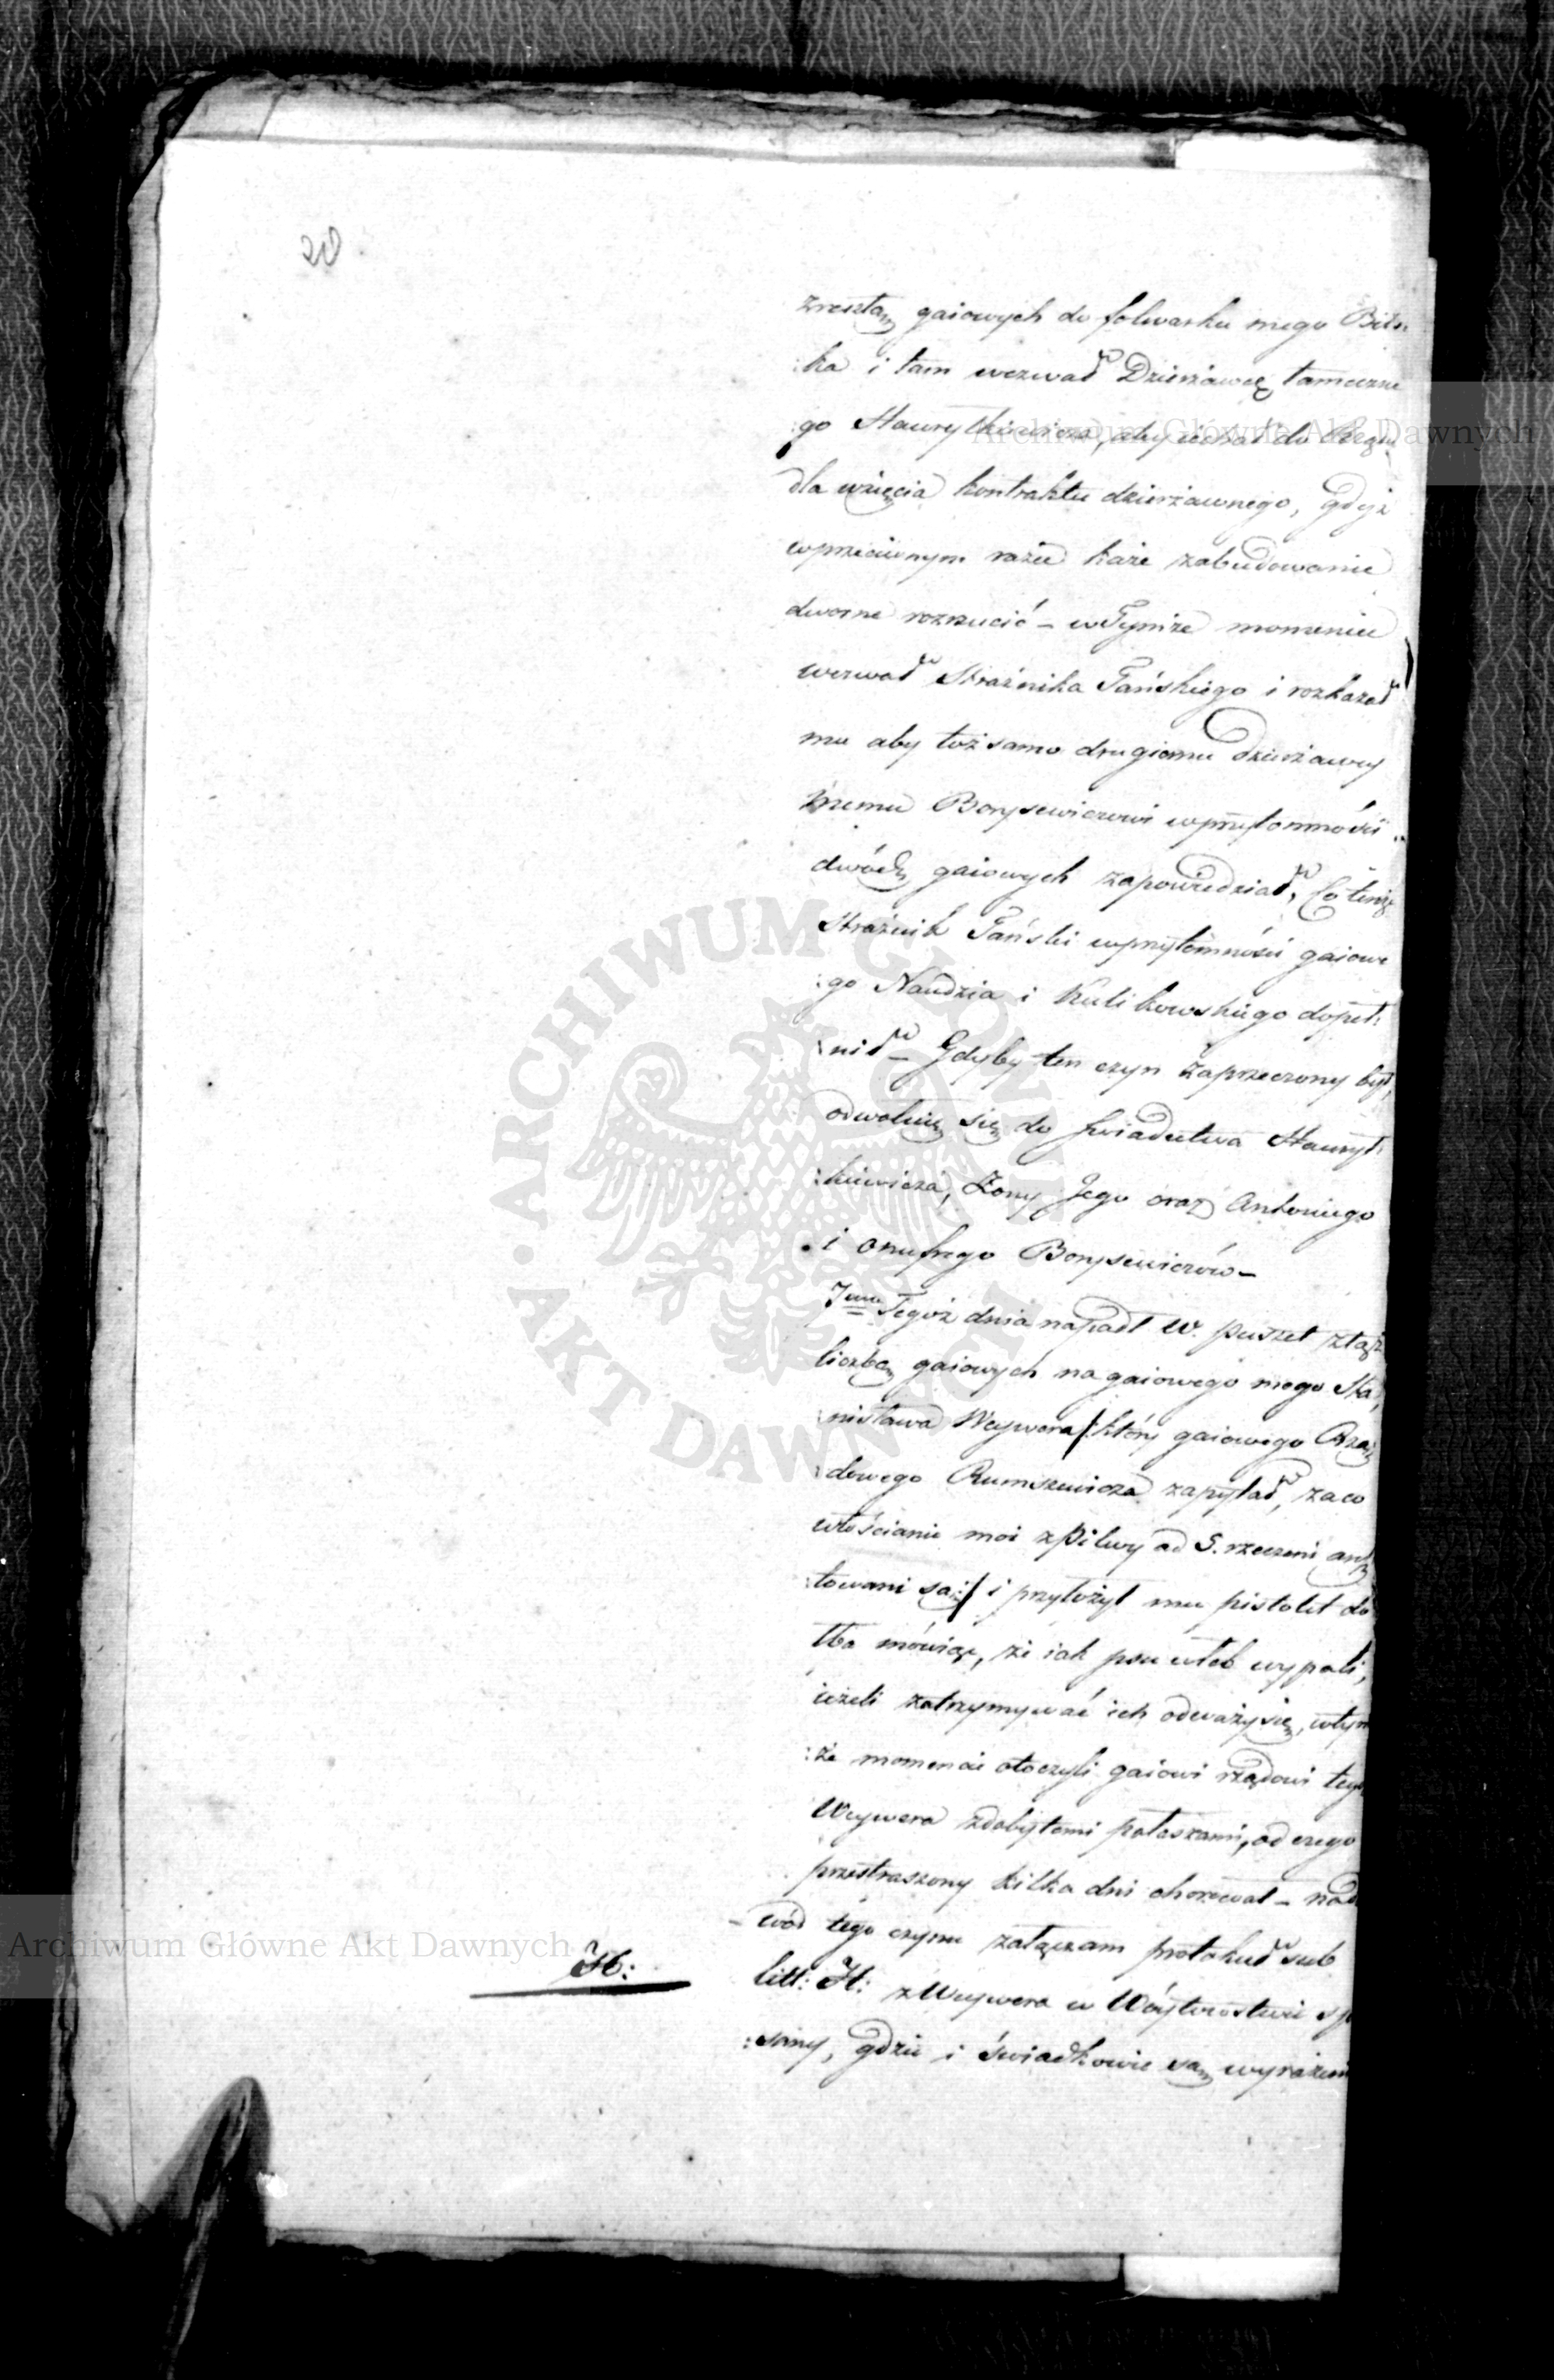 20
zresztą gaiowych do folwarku mego Bit
:ka i tam wezwał Dzierżawcę tameczne
:go Hawrylkiewicza, aby iechał do
dla wzięcia kontraktu dzierżawnego, gdyż
wprzeciwnym razie każe zabudowanie
dworne rozrzucić – wTymże momencie
wezwał Strażnika Tańskiego i rozkazał
mu aby toż samo drugiemu dzierżawcy
memu Borysewiczowi wprzytomności
dwóch gaiowych zapowiedział, Co tenże
Strażnik Tański wprzytomności gaiowe
:go Naudzia i Kulikowskiego dopeł:
:nił – Gdyby ten czyn zaprzeczony był,
odwołuię się do świadectwa Hawryl:
:kiewicza, Żony Jego oraz Antoniego
i Onufrego Borysewiczów –
7mo Tegoż dnia napadł W. Puszet ztąż
liczbą gaiowych na gaiowego mego Sta:
:nisława Weywera /: który gaiowego Rzą
:dowego Rumszewicza zapytał, zaco
włościanie moi zPilwy ad 5. rzeczeni aresz
:towani są :/ i przyłożył mu pistolet do
łba mówiąc, że iak psu włeb wypali,
ieżeli zatrzymywać ich odważy się, wtym
:że momencie otoczyli gaiowi rządowi tego
Weywera zdobytemi pałaszami, od czego
przestraszony kilka dni chorował – nado
– wód tego czynu załączam protokuł sub
H:
litt: H: zWeywera w Wóytowstwie sp
:sany, gdzie i świadkowie są wyrażeni
Archiwum Główne Akt Dawnych
Archiwum Główne Akt Dawnych
ARCHIWUM GŁÓWNE AKT DAWNYCH